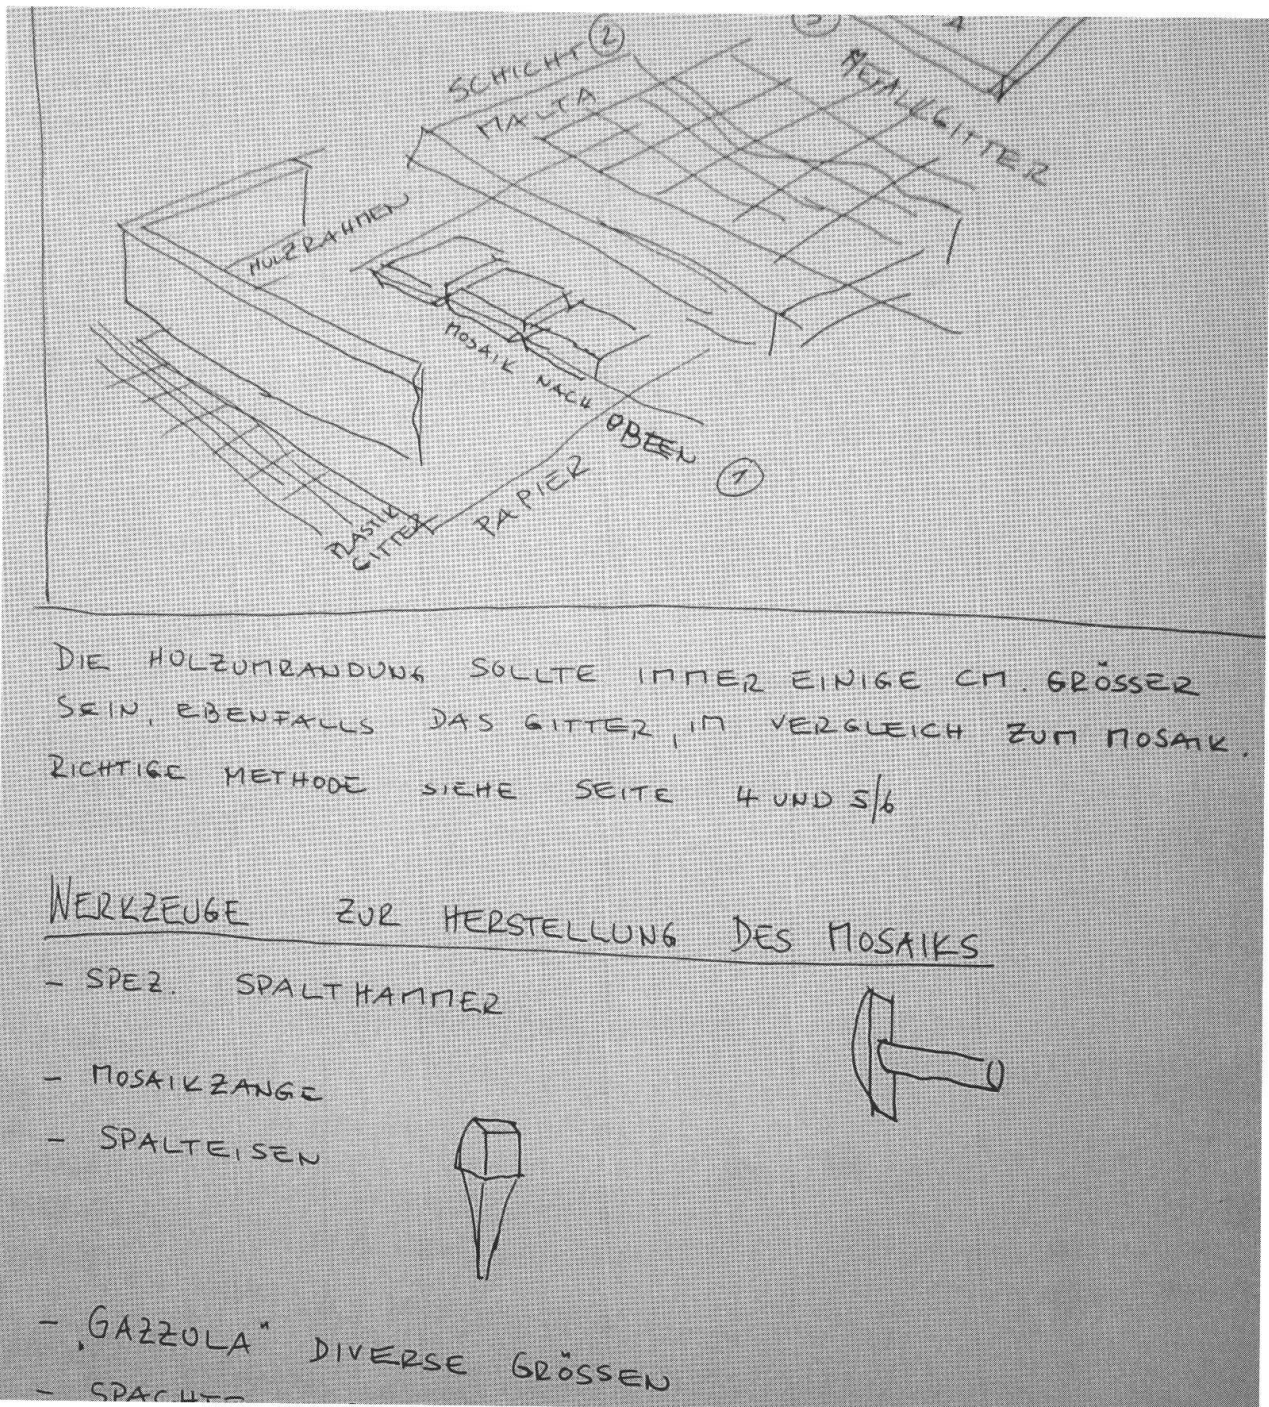 SCHICHT 2
MALTA
3
4
METALLGITTER
HOLZRAHMEN
MOSAIK NACH OBEN 1
PAPIER
PLASTIK
GITTER
DIE HOLZUMRANDUNG SOLLTE IMMER EINIGE CM. GRÖSSER
SEIN, EBENFALLS DAS GITTER, IM VERGLEICH ZUM MOSAIK.
RICHTIGE METHODE SIEHE SEITE 4 UND 5/6
WERKZEUGE ZUR HERSTELLUNG DES MOSAIKS
- SPEZ. SPALTHAMMER
- MOSAIKZANGE
- SPALTEISEN
- „GAZZULA" DIVERSE GRÖSSEN